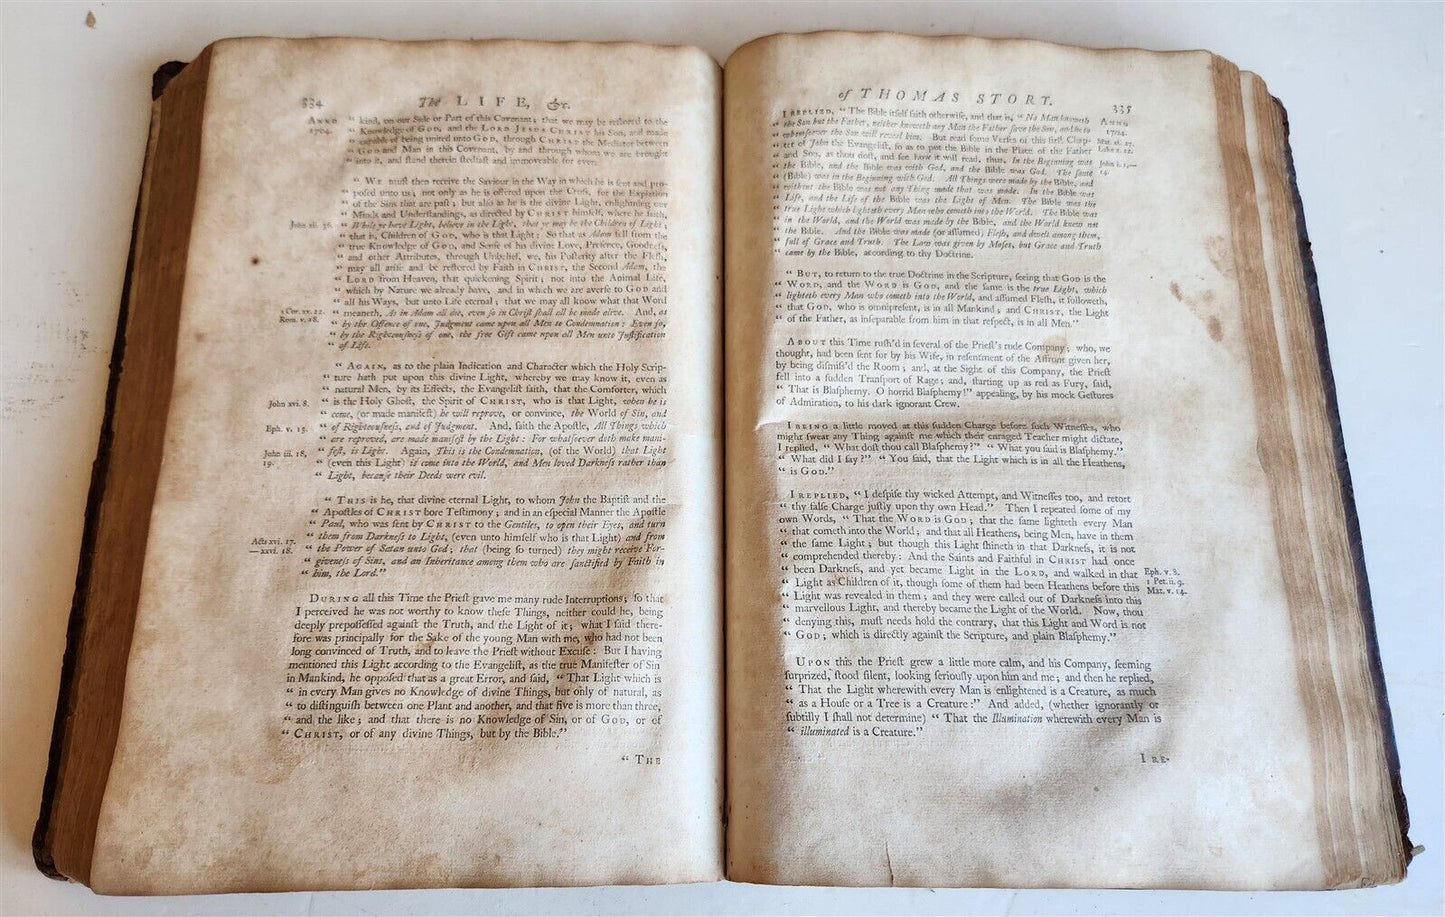 334 The LIFE, &c.
ANNO 1704.
“ kind, on our Side or Part of this Covenant; that we may be restored to the
“ Knowledge of GOD, and the LORD JESUS CHRIST his Son, and made
“ capable of being united unto GOD, through CHRIST the Mediator between
“ GOD and Man in this Covenant, by and through whom we are brought
“ into it, and stand therein stedfast and immoveable for ever.
“ WE must then receive the Saviour in the Way in which he is sent and pro-
“ posed unto us; not only as he is offered upon the Cross, for the Expiation
“ of the Sins that are past; but also as he is the divine Light, enlightning our
“ Minds and Understandings, as directed by CHRIST himself, where he saith,
John xii. 36.
“ While ye have Light, believe in the Light, that ye may be the Children of Light;
“ that is, Children of GOD, who is that Light: So that as Adam fell from the
“ true Knowledge of GOD, and Sense of his divine Love, Presence, Goodness,
“ and other Attributes, through Unbelief, we, his Posterity after the Flesh,
“ may all arise and be restored by Faith in CHRIST, the Second Adam, the
“ LORD from Heaven, that quickening Spirit; not into the Animal Life,
“ which by Nature we already have, and in which we are averse to GOD and
“ all his Ways, but unto Life eternal; that we may all know what that Word
1 Cor. xv. 22.
“ meaneth, As in Adam all die, even so in Christ shall all be made alive. And, as
Rom. v. 18.
“ by the Offence of one, Judgment came upon all Men to Condemnation: Even so,
“ by the Righteousness of one, the free Gift came upon all Men unto Justification
“ of Life.
“ AGAIN, as to the plain Indication and Character which the Holy Scrip-
“ ture hath put upon this divine Light, whereby we may know it, even as
“ natural Men, by its Effects, the Evangelist saith, that the Comforter, which
John xvi. 8.
“ is the Holy Ghost, the Spirit of CHRIST, who is that Light, when he is
“ come, (or made manifest) he will reprove, or convince, the World of Sin, and
Eph. v. 13.
“ of Righteousness, and of Judgment. And, saith the Apostle, All Things which
“ are reproved, are made manifest by the Light: For whatsoever doth make mani-
John iii. 18, 19.
“ fest, is Light. Again, This is the Condemnation, (of the World) that Light
“ (even this Light) is come into the World, and Men loved Darkness rather than
“ Light, because their Deeds were evil.
“ THIS is he, that divine eternal Light, to whom John the Baptist and the
“ Apostles of CHRIST bore Testimony; and in an especial Manner the Apostle
“ Paul, who was sent by CHRIST to the Gentiles, to open their Eyes, and turn
Acts xvi. 17.
“ them from Darkness to Light, (even unto himself who is that Light) and from
—xxvi. 18.
“ the Power of Satan unto God; that (being so turned) they might receive For-
“ giveness of Sins, and an Inheritance among them who are sanctified by Faith in
“ him, the Lord.”
DURING all this Time the Priest gave me many rude Interruptions; so that
I perceived he was not worthy to know these Things, neither could he, being
deeply prepossessed against the Truth, and the Light of it; what I said there-
fore was principally for the Sake of the young Man with me, who had not been
long convinced of Truth, and to leave the Priest without Excuse: But I having
mentioned this Light according to the Evangelist, as the true Manifester of Sin
in Mankind, he opposed that as a great Error, and said, “ That Light which is
“ in every Man gives no Knowledge of divine Things, but only of natural, as
“ to distinguish between one Plant and another, and that five is more than three,
“ and the like; and that there is no Knowledge of Sin, or of GOD, or of
“ CHRIST, or of any divine Things, but by the Bible.”
“ THE
of THOMAS STORY. 335
ANNO 1704.
I REPLIED, “ The Bible itself saith otherwise, and that is, “ No Man knoweth
“ the Son but the Father, neither knoweth any Man the Father save the Son, and he to
“ whomsoever the Son will reveal him. But read some Verses of this first Chap-
Mat. xi. 27.
“ ter of John the Evangelist, so as to put the Bible in the Place of the Father
Luke x. 22.
“ and Son, as thou dost, and see how it will read, thus, In the Beginning was
John i. 1,—14.
“ the Bible, and the Bible was with God, and the Bible was God. The same
“ (Bible) was in the Beginning with God. All Things were made by the Bible, and
“ without the Bible was not any Thing made that was made. In the Bible was
“ Life, and the Life of the Bible was the Light of Men. The Bible was the
“ true Light which lighteth every Man who cometh into the World. The Bible was
“ in the World, and the World was made by the Bible, and the World knew not
“ the Bible. And the Bible was made (or assumed) Flesh, and dwelt among them,
“ full of Grace and Truth. The Law was given by Moses, but Grace and Truth
“ came by the Bible, according to thy Doctrine.
“ BUT, to return to the true Doctrine in the Scripture, seeing that GOD is the
“ WORD, and the WORD is GOD, and the same is the true Light, which
“ lighteth every Man who cometh into the World, and assumed Flesh, it followeth,
“ that GOD, who is omnipresent, is in all Mankind; and CHRIST, the Light
“ of the Father, as inseparable from him in that respect, is in all Men.”
ABOUT this Time rush'd in several of the Priest's rude Company; who, we
thought, had been sent for by his Wife, in resentment of the Affront given her,
by being dismiss'd the Room; and, at the Sight of this Company, the Priest
fell into a sudden Transport of Rage; and, starting up as red as Fury, said,
“ That is Blasphemy. O horrid Blasphemy!” appealing, by his mock Gestures
of Admiration, to his dark ignorant Crew.
I BEING a little moved at this sudden Charge before such Witnesses, who
might swear any Thing against me which their enraged Teacher might dictate,
I replied, “ What dost thou call Blasphemy?” “ What you said is Blasphemy.”
“ What did I say?” “ You said, that the Light which is in all the Heathens,
“ is GOD.”
I REPLIED, “ I despise thy wicked Attempt, and Witnesses too, and retort
“ thy false Charge justly upon thy own Head.” Then I repeated some of my
own Words, “ That the WORD is GOD; that the same lighteth every Man
“ that cometh into the World; and that all Heathens, being Men, have in them
“ the same Light; but though this Light shineth in that Darkness, it is not
“ comprehended thereby: And the Saints and Faithful in CHRIST had once
“ been Darkness, and yet became Light in the LORD, and walked in that
Eph. v. 8.
“ Light as Children of it, though some of them had been Heathens before this
1 Pet. ii. 9.
“ Light was revealed in them; and they were called out of Darkness into this
Mat. v. 14.
“ marvellous Light, and thereby became the Light of the World. Now, thou
“ denying this, must needs hold the contrary, that this Light and Word is not
“ GOD; which is directly against the Scripture, and plain Blasphemy.”
UPON this the Priest grew a little more calm, and his Company, seeming
surprized, stood silent, looking seriously upon him and me; and then he replied,
“ That the Light wherewith every Man is enlightened is a Creature, as much
“ as a House or a Tree is a Creature:” And added, (whether ignorantly or
subtilly I shall not determine) “ That the Illumination wherewith every Man is
“ illuminated is a Creature.”
I RE-